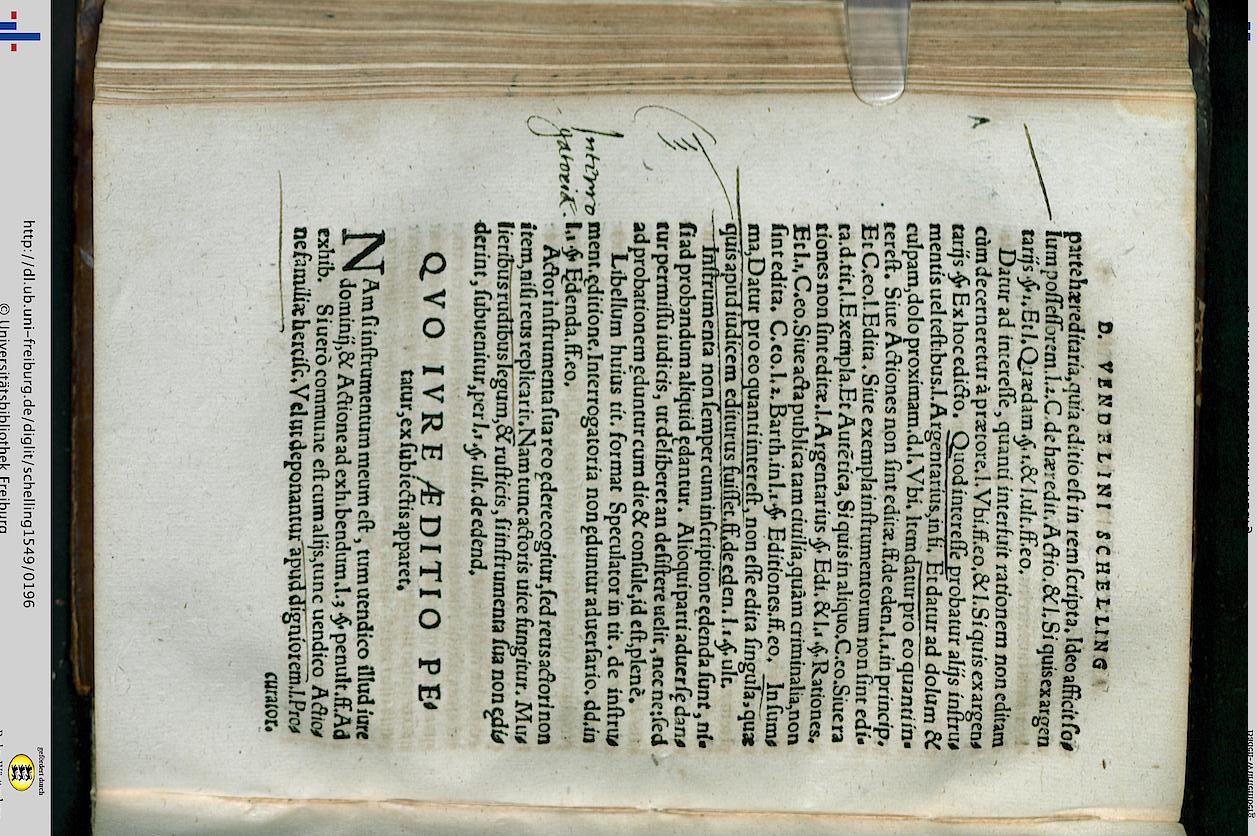 D. VENDELINI SCHELLING
parte hæreditaria, quia editio est in rem scripta. Ideo afficit so⸗
lum possessorem. l. 1. C. de hæredit. Actio. & l. Si quis ex argen
tarijs §. 1. Et l. Quædam §. 1. & l. ult. ff. eo.
Datur ad interesse, quanti interfuit rationem non editam
cùm decerneretur à prætore. l. Vbi. ff. eo. & l. Si quis ex argen⸗
tarijs §. Ex hoc edicto. Quod interesse probatur alijs instru⸗
mentis uel testibus. l. Argentarius, in fi. Et datur ad dolum &
culpam, dolo proximam. d. l. Vbi. Item datur pro eo quanti in⸗
terest. Siue Actiones non sint editæ. ff. de eden. l. 1. in princip.
Et C. eo. l. Edita. Siue exempla instrumentorum non sint edi⸗
ta. d. tit. l. Exempla. Et Autētica, Si quis in aliquo. C. eo. Siue ra
tiones non sint editæ. l. Argentarius §. Edi. & l. 1. §. Rationes.
Et l. 1. C. eo. Siue acta publica tam ciuilia, quàm criminalia, non
sint edita. C. eo. l. 2. Barth. in l. 1. §. Editiones. ff. eo. In sum⸗
ma, Datur pro eo quanti interest, non esse edita singula, quæ
quis apud iudicem editurus fuisset. ff. de eden. l. 1. §. ult.
Instrumenta non semper cum inscriptione ędenda sunt, ni⸗
si ad probandum aliquid edantur. Alioqui parti aduersę dan⸗
tur permissu iudicis, ut deliberet an desistere uelit, nec ne: sed
ad probationem ęduntur cum die & consule, id est, plenè.
Libellum huius tit. format Speculator in tit. de instru⸗
ment. ęditione. Interrogatoria non ęduntur aduersario. dd. in
l. 1. §. Edenda. ff. eo.
Interro
gatoria.
Actor instrumenta sua reo edere cogitur, sed reus actori non
item, nisi reus replicarit. Nam tunc actoris uice fungitur. Mu⸗
lieribus rudibus legum, & rusticis, si instrumenta sua non ędi⸗
derint, subuenitur, per l. 1. §. ult. de edend.
QVO IVRE ÆDITIO PE⸗
tatur, ex subiectis apparet.
NAm si instrumentum meum est, tum uendico illud iure
dominij, & Actione ad exhibendum. l. 3. §. penult. ff. Ad
exhib. Si uerò commune est cum alijs, tunc uendico Actio⸗
ne familiæ hercisc. Vel ut deponantur apud digniorem. l. Pro⸗
curator.
A
http://dl.ub.uni-freiburg.de/diglit/schelling1549/0196
© Universitätsbibliothek Freiburg
gefördert durch